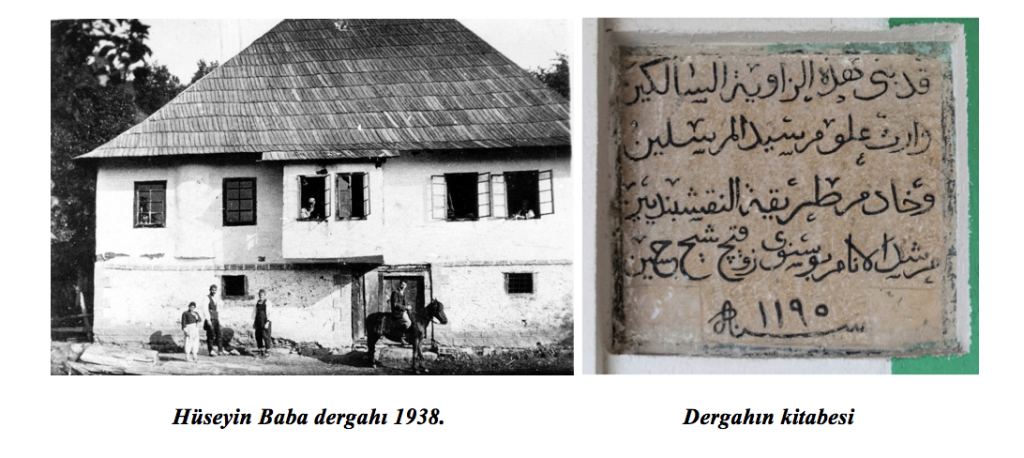 قد بنى هذه الزاوية السالكين
وارث علوم سيد المرسلين
وخادم طريقة النقشبنديين
مرشد الانام بوسنوى زوقچ شيخ حسين
سنة ١١٩٥
Hüseyin Baba dergahı 1938.
Dergahın kitabesi